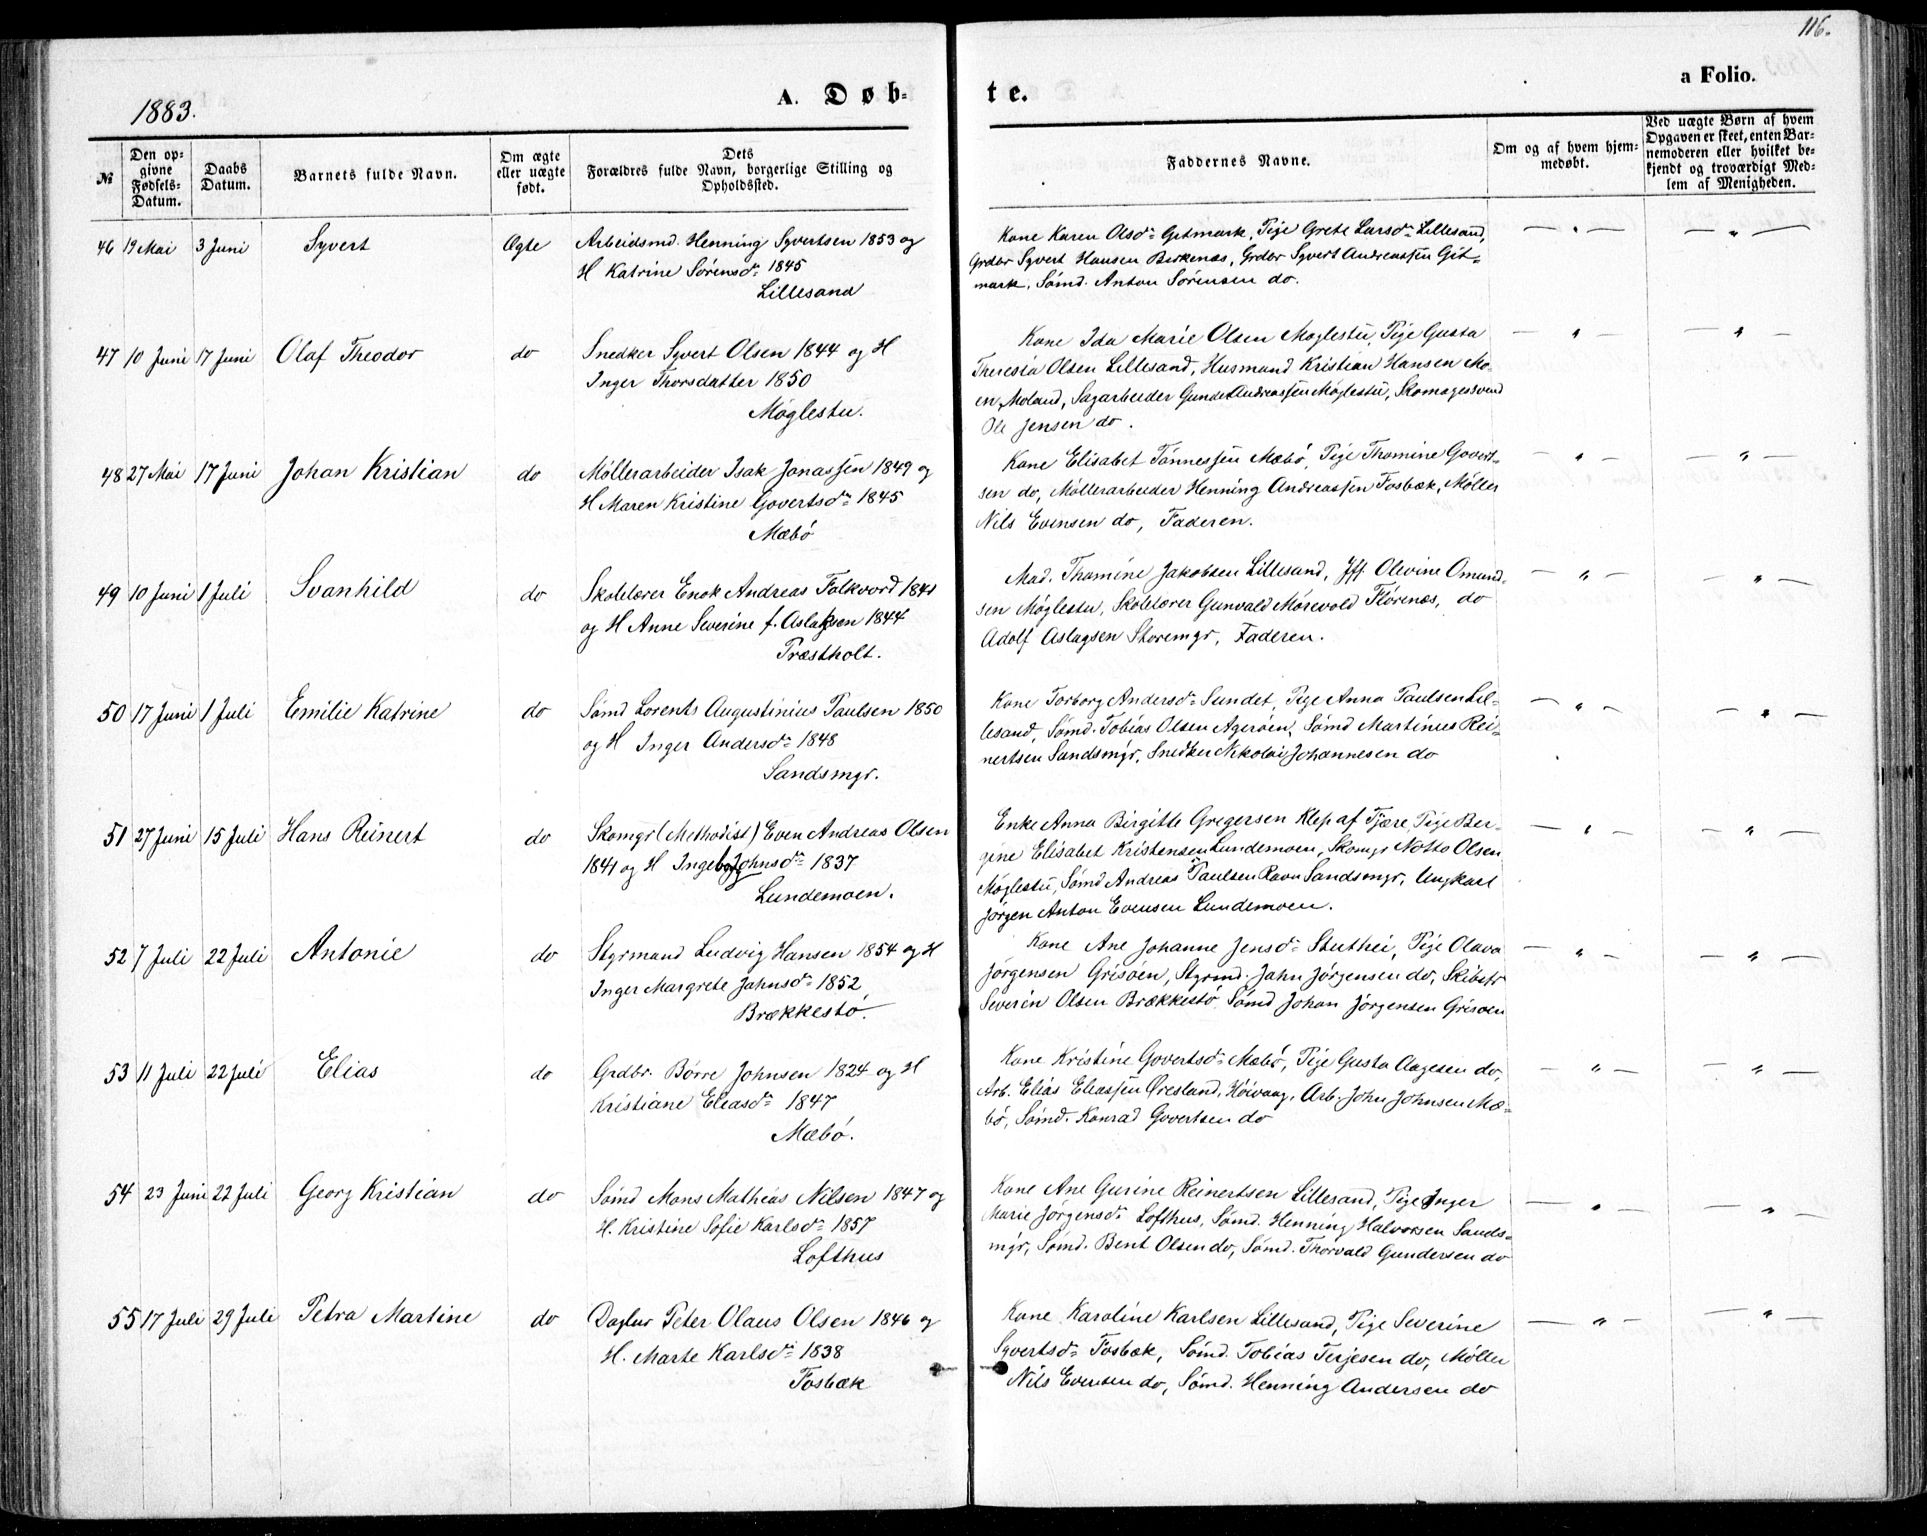 116.
1883.
A. Døb-
te.
a Folio.
№
Den op-
givne
Fødsels-
Datum.
Daabs
Datum.
Barnets fulde Navn.
Om ægte
eller uægte
født.
Dets
Forældres fulde Navn, borgerlige Stilling og
Opholdssted.
Faddernes Navne.
Om og af hvem hjem-
medøbt.
Ved uægte Børn af hvem
Opgaven er skeet, enten Bar-
nemoderen eller hvilket be-
kjendt og troværdigt Med-
lem af Menigheden.
46 19 Mai 3 Juni Syvert Ægte
Arbeidsmd. Henning Syvertsen 1853 og
H Katrine Sørensdr 1845
Lillesand
Kone Karen Olsdr Gitmark, Pige Grete Larsdr Lillesand,
Grdbr Syvert Hansen Birkenæs, Grdbr Syvert Andreassen Git-
mark, Sømd. Anton Sørensen do.
47 10 Juni 17 Juni Olaf Theodor do
Snedker Syvert Olsen 1844 og H
Inger Thorsdatter 1850
Møglestu.
Kone Ida Marie Olsen Møglestu, Pige Gusta
Theresia Olsen Lillesand, Husmand Kristian Hansen Mo-
en, Moland, Sagarbeider Gunder Andreassen Møglestu, Skomagersvend
Ole Jensen do.
48 27 Mai 17 Juni Johan Kristian do
Møllerarbeider Isak Jonassen 1849 og
H Maren Kristine Govertsdr 1845
Mæbø
Kone Elisabet Tønnessen Mæbø, Pige Thomine Govert-
sen do, Møllerarbeider Henning Andreassen Fosbæk, Møller
Nils Evensen do, Faderen.
49 10 Juni 1 Juli Svanhild do
Skolelærer Enok Andreas Folkvord 1841
og H Anne Severine f. Aslaksen 1844
Præstholt.
Mad. Thomine Jakobsen Lillesand, Jff. Olevine Omund-
sen Møglestu, Skolelærer Gunvald Mørevold Flørenæs, do
Adolf Aslagsen Storemgr, Faderen.
50 17 Juni 1 Juli Emilie Katrine do
Sømd Lorents Augustinius Paulsen 1850
og H Inger Andersdr 1848
Sandsmgr.
Kone Torborg Andersdr Sundet, Pige Anna Paulsen Lil-
lesand, Sømd. Tobias Olsen Agerøen, Sømd Martinius Rei-
nertsen Sandsmgr, Snedker Nikolai Johannesen do
51 27 Juni 15 Juli Hans Reinert do
Skomgr (Methodist) Even Andreas Olsen
1841 og H Ingeborg Johnsdr 1837
Lundemoen.
Enke Anna Birgitte Gregersen Klep af Fjære, Pige Ber-
gine Elisabet Kristensen Lundemoen, Skomgr Notto Olsen
Møglestu, Sømd Andreas Paulsen Ravn Sandsmgr, Ungkarl
Jørgen Anton Evensen Lundemoen.
52 7 Juli 22 Juli Antonie do
Styrmand Ludvig Hansen 1854 og H
Inger Margrete Jahnsdr 1852
Brækkestø.
Kone Ane Johanne Jensdr Stuthei, Pige Olava
Jørgensen Grisøen, Styrmd. Jahn Jørgensen do, Skibstr
Severin Olsen Brækkestø Sømd Johan Jørgensen Grisøen
53 11 Juli 22 Juli Elias do
Grdbr. Børre Johnsen 1824 og H
Kristiane Eliasdr 1847
Mæbø.
Kone Kristine Govertsdr Mæbø, Pige Gusta Aagesen do,
Arb. Elias Eliassen Øresland, Høivaag, Arb. John Johnsen Mæ-
bø, Sømd. Konrad Govertsen do
54 23 Juni 22 Juli Georg Kristian do
Sømd Mons Mathias Nilsen 1847 og
H. Kristine Sofie Karlsdr 1857
Lofthus
Kone Ane Gurine Reinertsen Lillesand, Pige Inger
Marie Jørgensdr Lofthus, Sømd. Henning Halvorsen Sands-
mgr, Sømd. Bent Olsen do, Sømd. Thorvald Gundersen do
55 17 Juli 29 Juli Petra Martine do
Daglnr Peter Olaus Olsen 1846 og
H. Marte Karlsdr 1838
Fosbæk
Kone Karoline Karlsen Lillesand, Pige Severine
Syvertsdr Fosbæk, Sømd. Tobias Terjesen do, Møller
Nils Evensen do, Sømd. Henning Andersen do